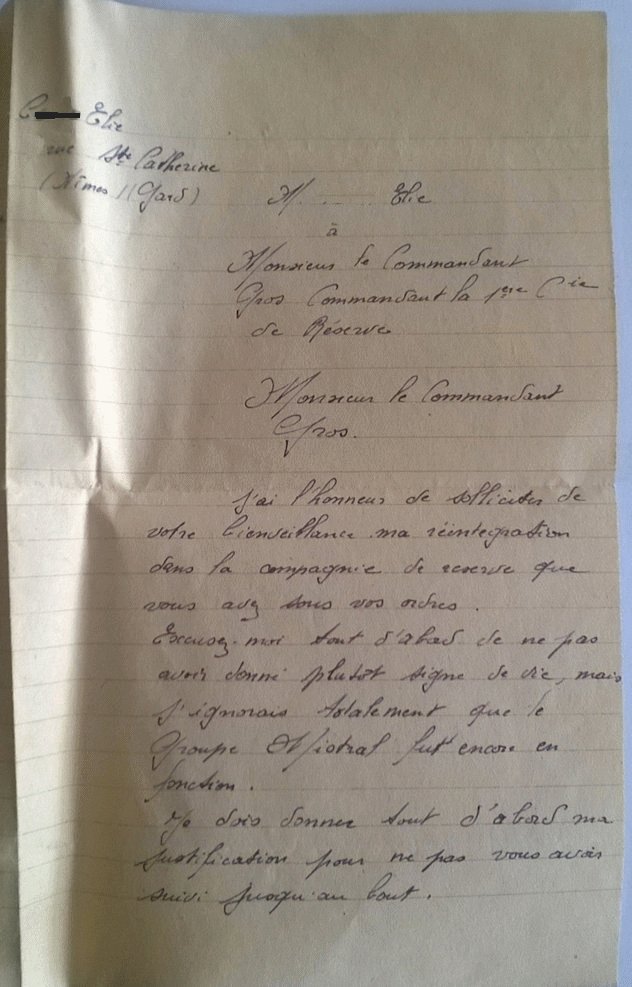 C Elie
rue Ste Catherine
(Nîmes) (Gard)
M. Elie
à
Monsieur le Commandant
Gros Commandant la 1ere Cie
de Réserve
Monsieur le Commandant
Gros.
J'ai l'honneur de solliciter de
votre bienveillance ma réintegration
dans la compagnie de reserve que
vous avez sous vos ordres.
Excusez-moi tout d'abad de ne pas
avoir donné plutôt signe de vie, mais
j'ignorais totalement que le
Groupe Mistral fut encore en
fonction.
Je dois donner tout d'abord ma
justification pour ne pas vous avoir
suivi jusqu'au bout.